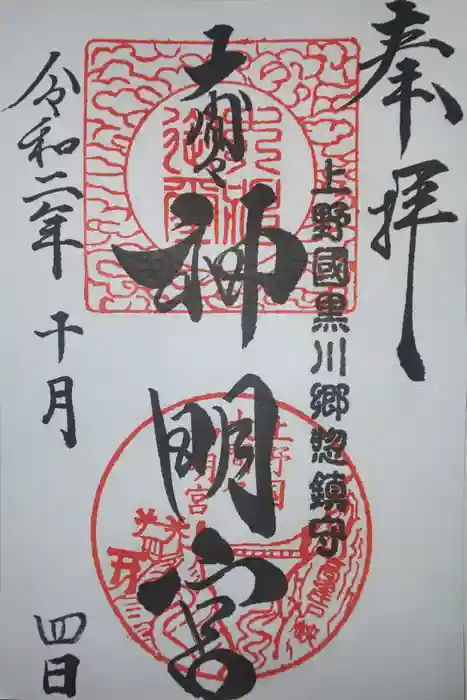 奉拝
上野國黒川郷惣鎮守
大間々
神明宮
令和二年
十月
四日